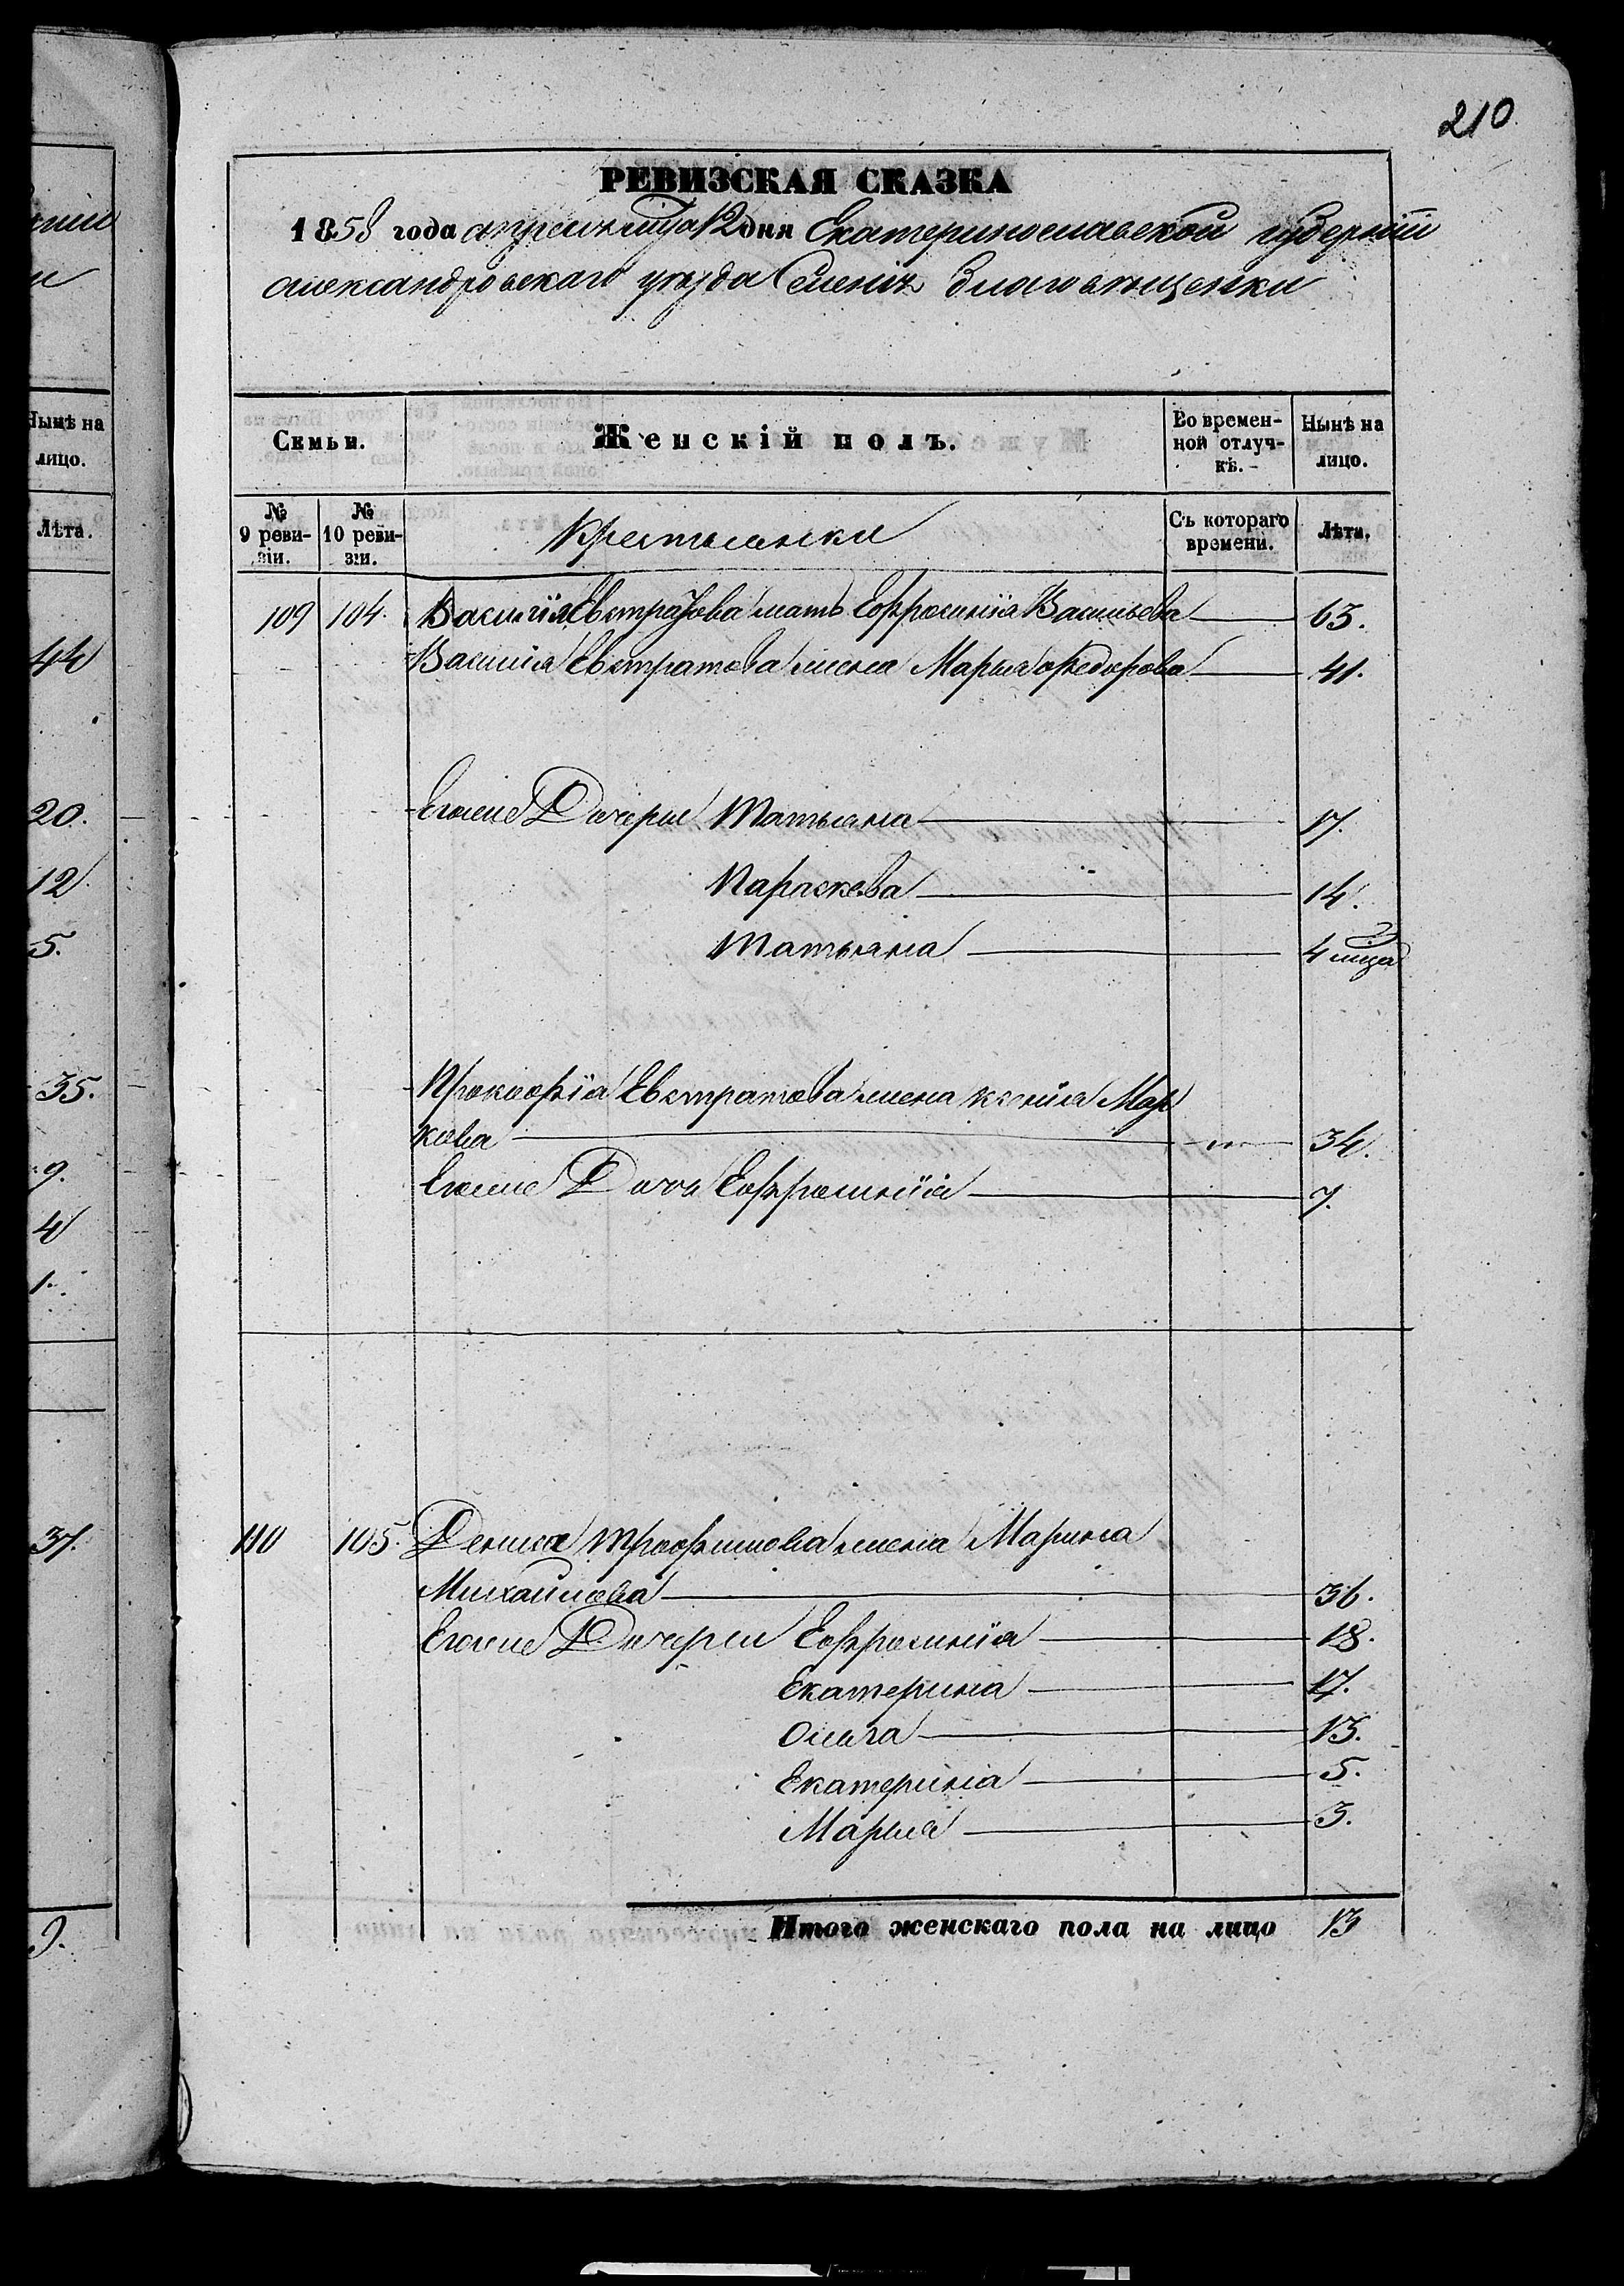 210
РЕВИЗСКАЯ СКАЗКА
1858 года апреля мца 12 дня Екатеринославской губерніи
Александровскаго уезда Селенія Благовещенки
Семьи.
Женскій полъ.
Во времен-
ной отлуч-
кѣ.
Нынѣ на
лицо.
№
9 реви-
зіи.
№
10 реви-
зіи.
Крестьянки
Съ котораго
времени.
Лѣта.
109 104. Василія Евстратова мать Ефросинія Васильева 63.
Василія Евстратова жена Марья Федорова 41.
Егоже Дочери Татьяна 17.
Параскева 14.
Татьяна 4 мца
Прокофія Евстратова жена Ксенія Мар
кова 34.
Егоже Дочь Ефросинія 7.
110 105. Дениса Трофимова жена Марина
Михайлова 36.
Егоже Дочери Ефросинія 18.
Екатерина 17.
Ольга 13.
Екатерина 5.
Марья 3.
Итого женскаго пола на лицо 13
Нынѣ на
лицо.
Лѣта.
44
20.
12
5.
35.
9.
4
1.
37.
9.